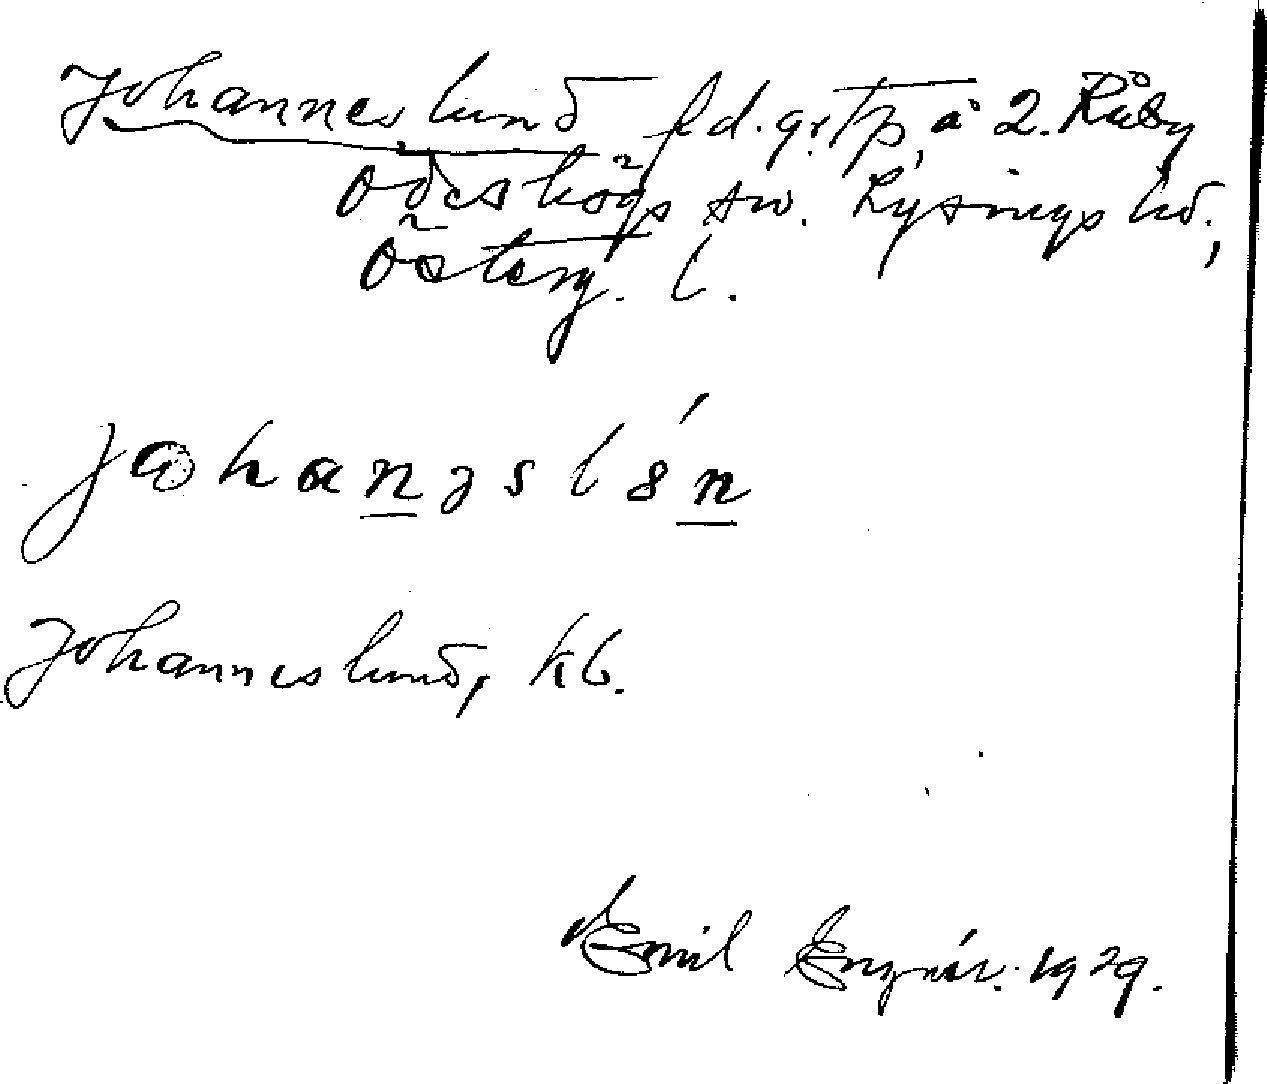 Johanneslund f.d. grtp, å 2. Råby
Ödeshögs sn. Lysings hd.,
Österg. l.
johanəslsń
Johanneslund, kb.
Emil 1929.